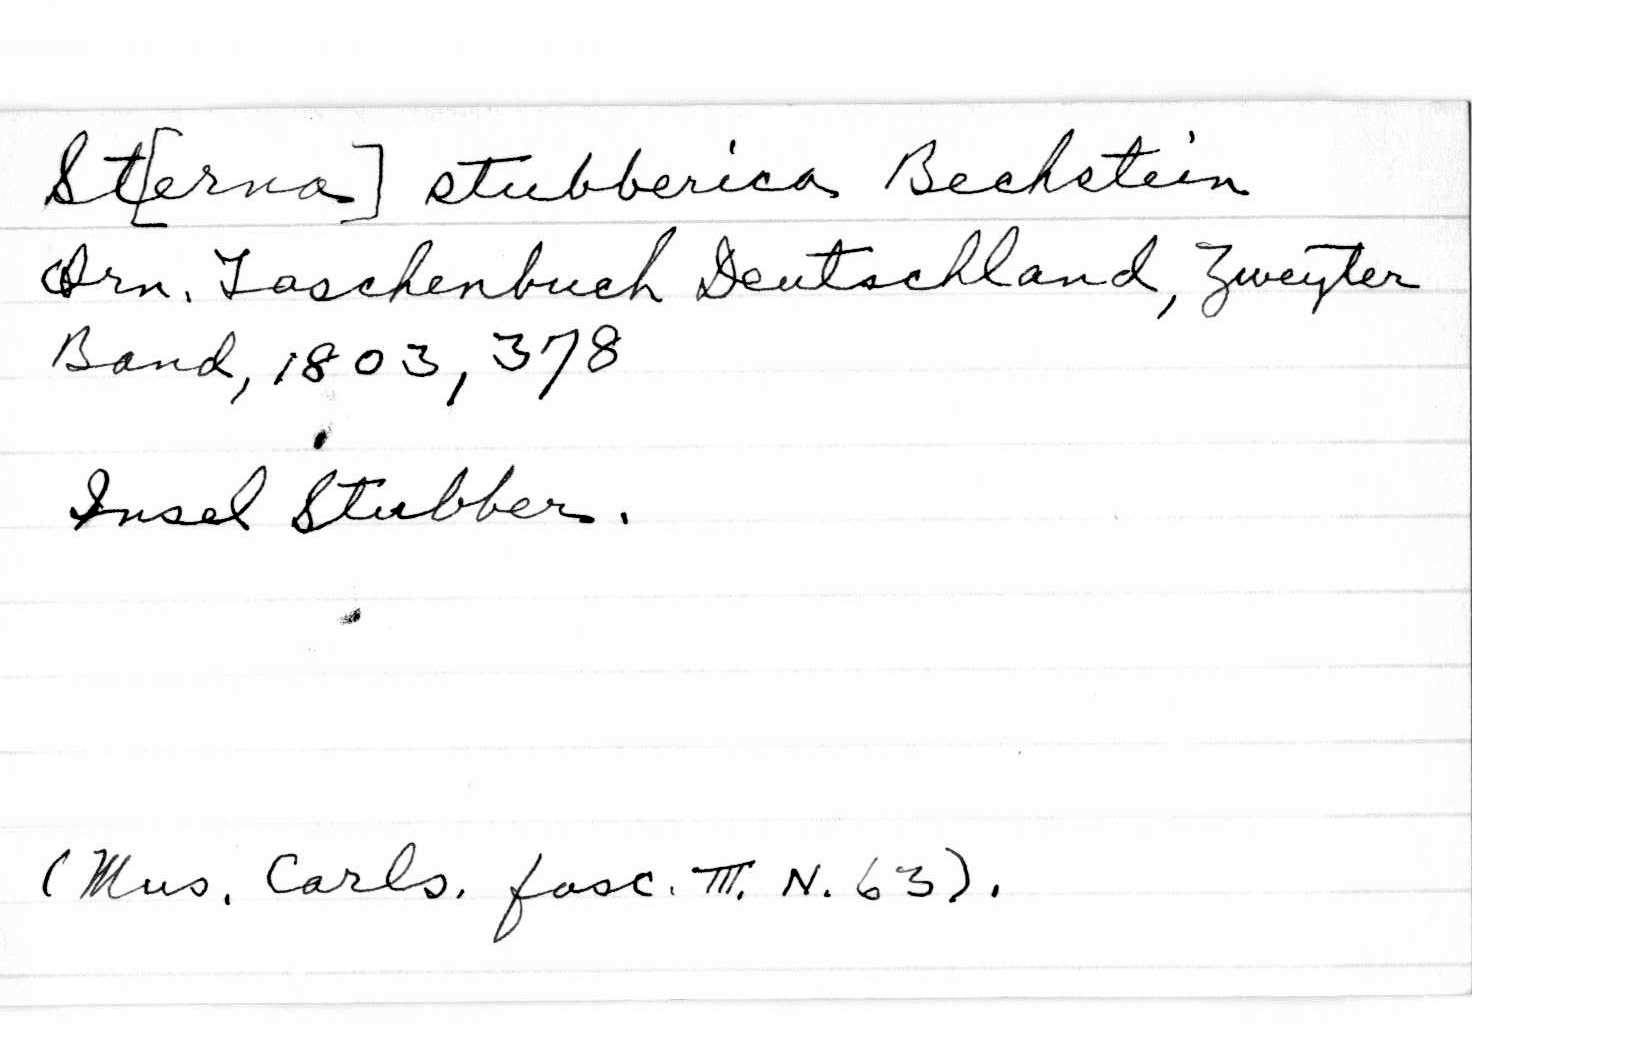 St[erna] stubberica Bechstein
Orn. Taschenbuch Deutschland, Zweyter
Band, 1803, 378
Insel Stubber.
(Mus. Carls. fasc. III. N. 63).